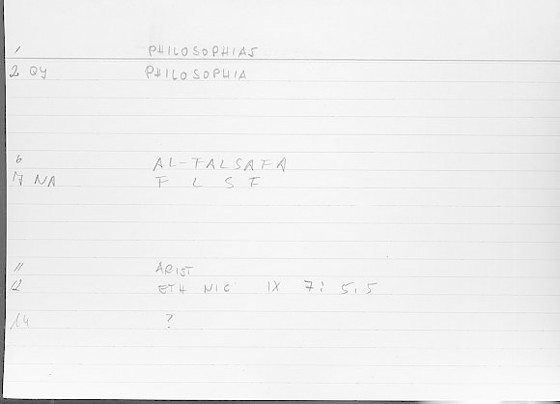 1 PHILOSOPHIAS
2 QY PHILOSOPHIA
6 AL-FALSAFA
7 NA F L S F
11 ARIST
12 ETH NIC IX 7: 5,5
14 ?